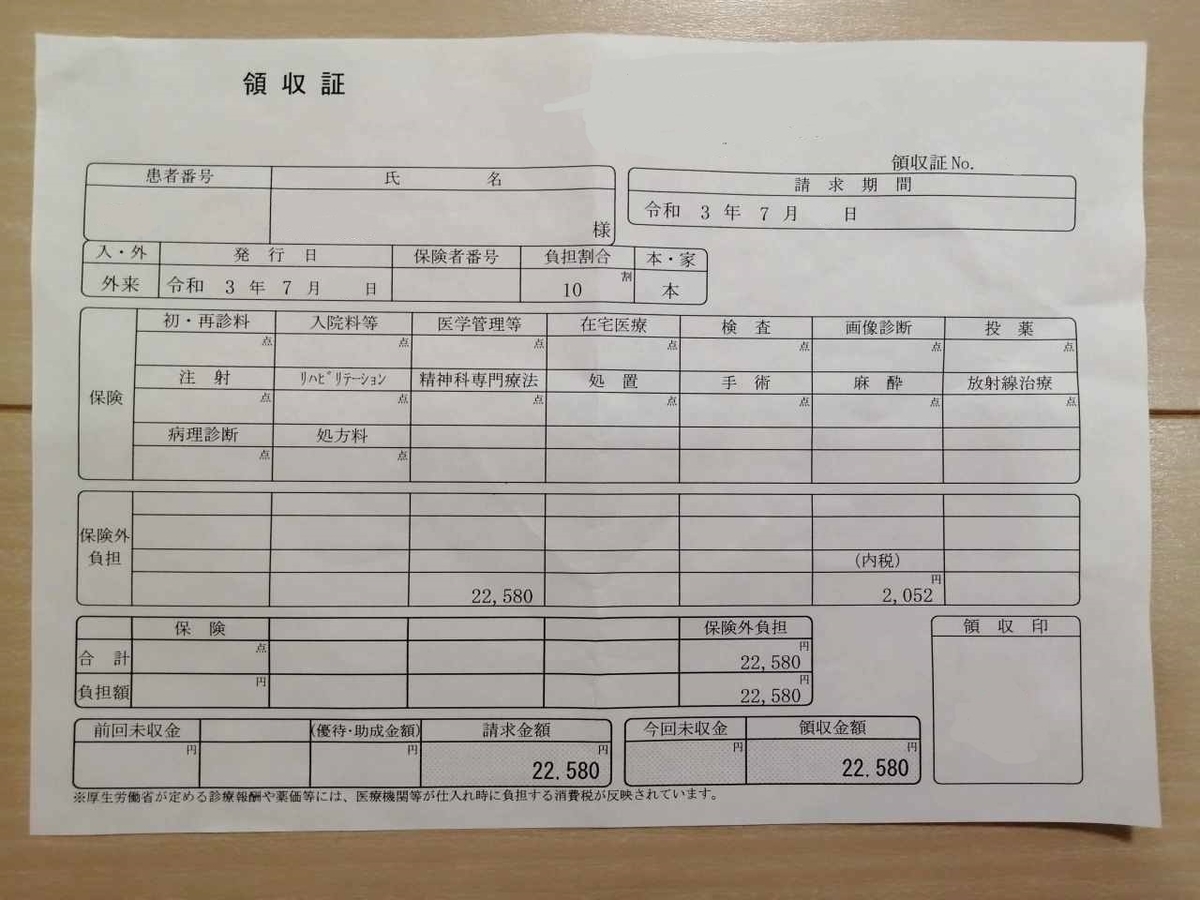 領収証
領収証No.
患者番号 氏 名
様
請求期間
令和 3 年 7 月 日
入・外 発行日 保険者番号 負担割合 本・家
外来 令和 3 年 7 月 日 10 割 本
保険
初・再診料 入院料等 医学管理等 在宅医療 検査 画像診断 投薬
点 点 点 点 点 点 点
注射 ﾘﾊﾋﾞﾘﾃｰｼｮﾝ 精神科専門療法 処置 手術 麻酔 放射線治療
点 点 点 点 点 点 点
病理診断 処方料
点 点
保険外
負担
(内税)
円
22,580 2,052
保険 保険外負担
合計 点 22,580 円
負担額 円 22,580 円
領収印
前回未収金 (優待・助成金額) 請求金額 今回未収金 領収金額
円 円 円 円 円
22.580 22.580
※厚生労働省が定める診療報酬や薬価等には、医療機関等が仕入れ時に負担する消費税が反映されています。